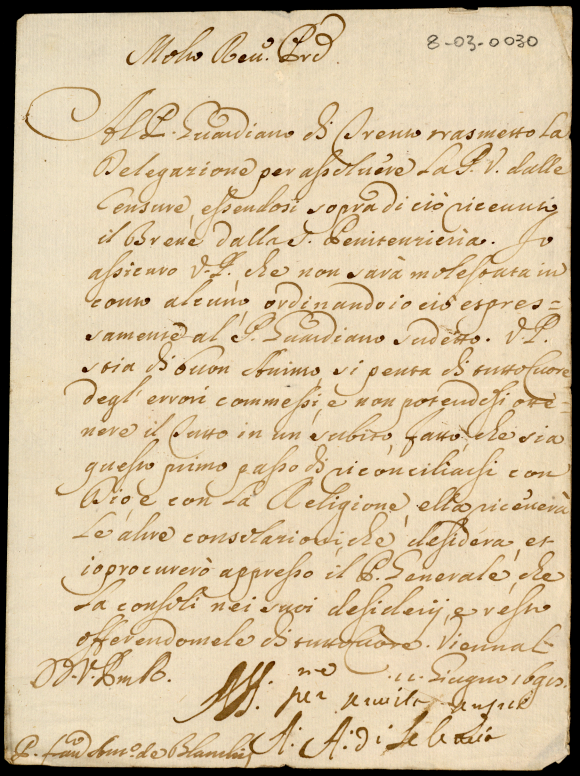 8-03-0030
Molto Reu.º Prd.
Al P. Guardiano di Trento trasmetto la
Delegazione per assoluere la P. V. dalle
Censure, essendosi sopra di ciò riceuuti
il Breue dalla S. Penitenzieria. Jo
assicuro V. P. che non sarà molestata in
conto alcuno ordinando io ciò espres=
samente al P. Guardiano sudetto. V. P.
stia di buon Animo si penta di tutto Cuore
degl' errori commessi, e non potendosi otte=
nere il tutto in un subito, fatto, che sia
questo primo passo di riconciliarsi con
Dio e con la Religione, ella riceuerà
le altre consolazioni, che desidera, et
io procurerò appresso il P. Generale, che
la consoli nei suoi desiderij e resto
offerendomele di tutto cuore. Vienna l
11 Giugno
D V. P. m R.
Aff. mo per
A: A: di
P. de Blanchis